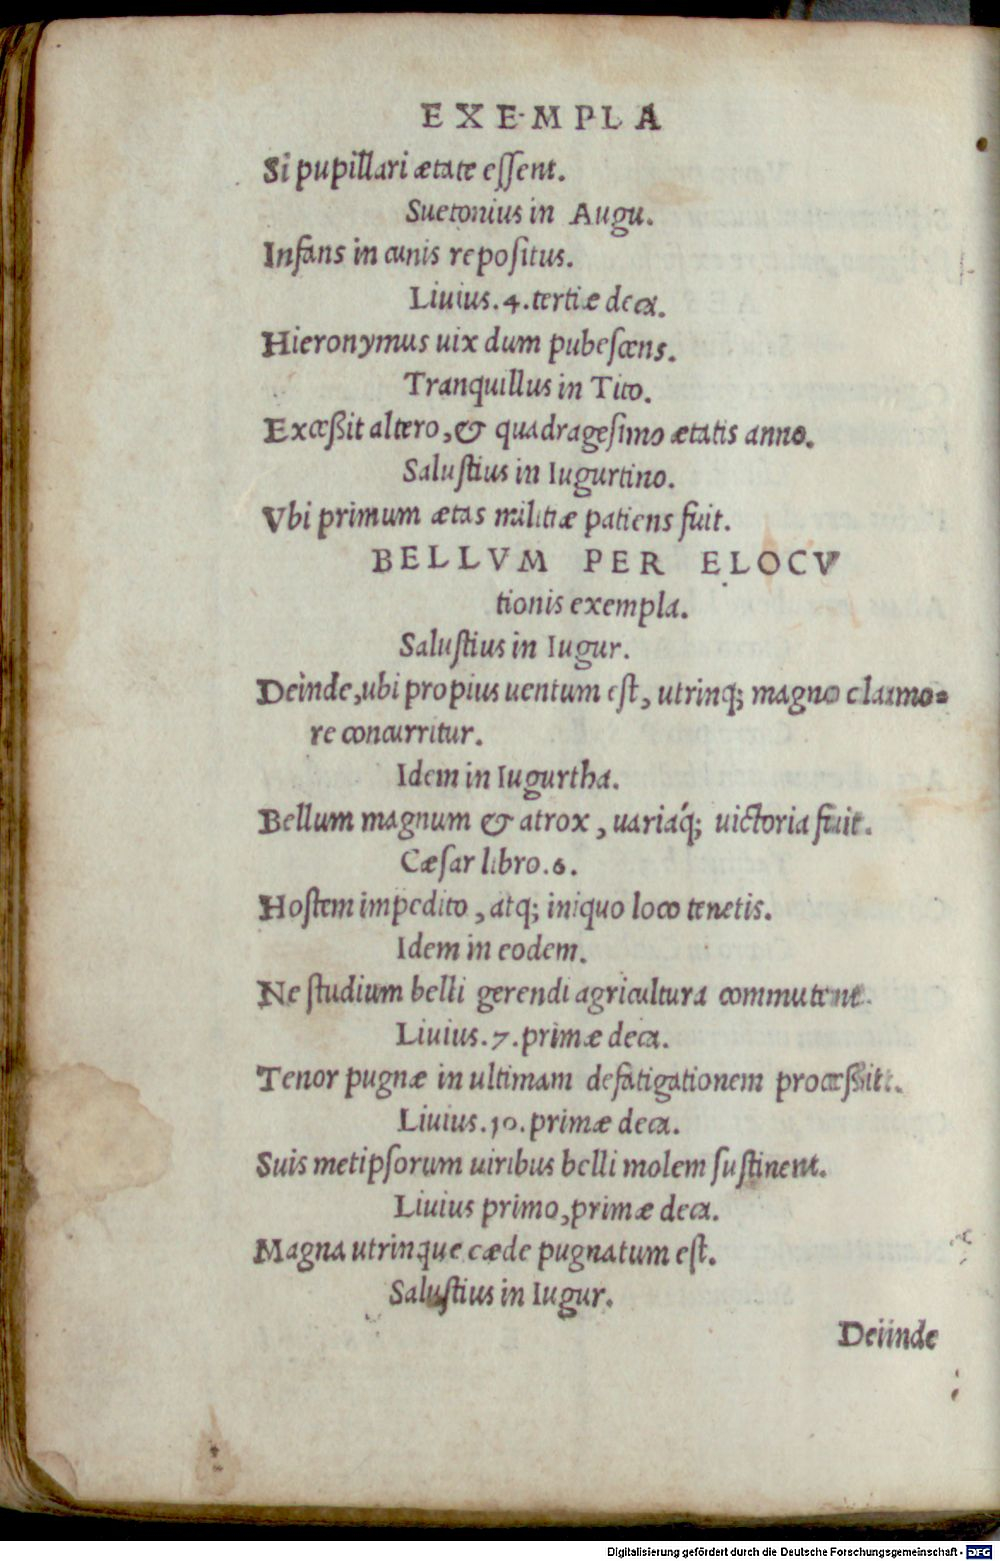 EXEMPLA
Si pupillari ætate essent.
Suetonius in Augu.
Infans in cunis repositus.
Liuius.4.tertiæ deca.
Hieronymus uix dum pubescens.
Tranquillus in Tito.
Excessit altero,& quadragesimo ætatis anno.
Salustius in Iugurtino.
Vbi primum ætas militiæ patiens fuit.
BELLVM PER ELOCV
tionis exempla.
Salustius in Iugur.
Deinde,ubi propius uentum est, utrinq; magno clamo=
re concurritur.
Idem in Iugurtha.
Bellum magnum & atrox, uariáq; uictoria fuit.
Cæsar libro.6.
Hostem impedito, atq; iniquo loco tenetis.
Idem in eodem.
Ne studium belli gerendi agricultura commutent.
Liuius.7.primæ deca.
Tenor pugnæ in ultimam defatigationem processit.
Liuius.10.primæ deca.
Suis metipsorum uiribus belli molem sustinent.
Liuius primo,primæ deca.
Magna utrinque cæde pugnatum est.
Salustius in Iugur.
Deiinde
Digitalisierung gefördert durch die Deutsche Forschungsgemeinschaft - DFG